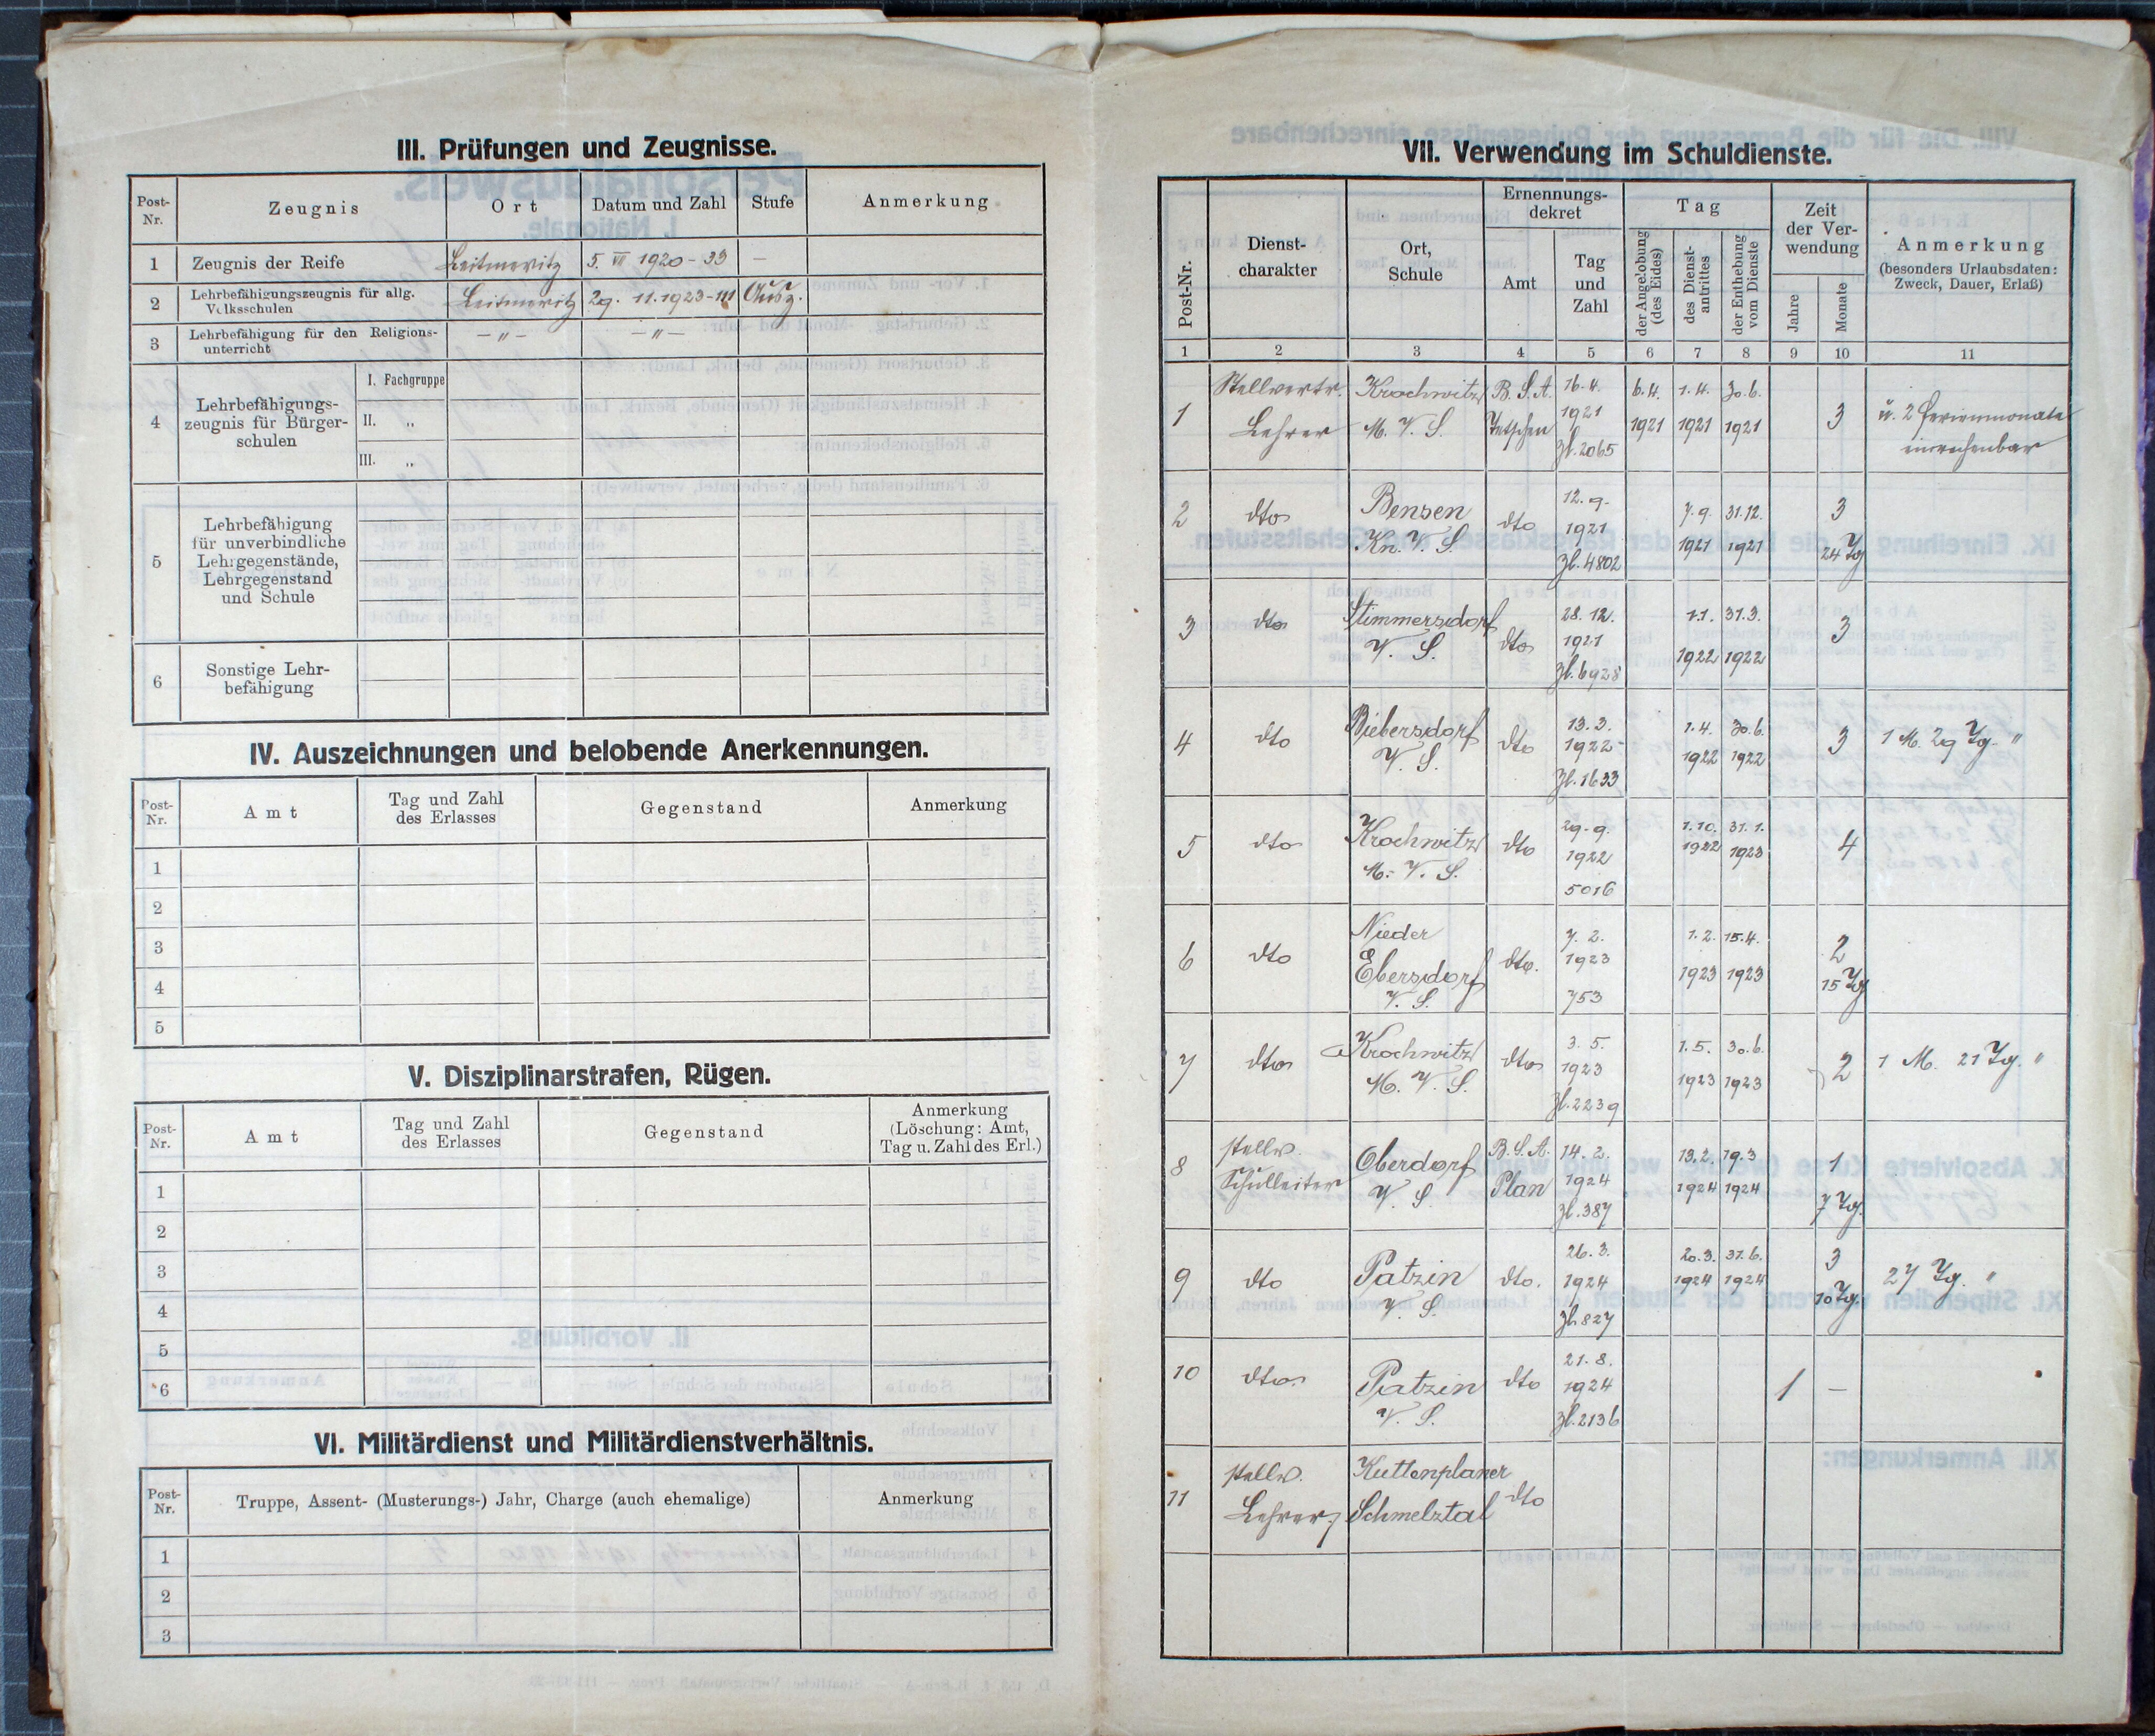 III. Prüfungen und Zeugnisse.
Post-Nr. Zeugnis Ort Datum und Zahl Stufe Anmerkung
1 Zeugnis der Reife Leitmeritz 5. VII 1920 - 33 —
2 Lehrbefähigungszeugnis für allg. Volksschulen Leitmeritz 29. 11. 1923 - 111 Ausz.
3 Lehrbefähigung für den Religions-unterricht — " — — " —
4 Lehrbefähigungs-zeugnis für Bürger-schulen
I. Fachgruppe
II. „
III. „
5 Lehrbefähigung für unverbindliche Lehrgegenstände, Lehrgegenstand und Schule
6 Sonstige Lehr-befähigung
IV. Auszeichnungen und belobende Anerkennungen.
Post-Nr. Amt Tag und Zahl des Erlasses Gegenstand Anmerkung
1
2
3
4
5
V. Disziplinarstrafen, Rügen.
Post-Nr. Amt Tag und Zahl des Erlasses Gegenstand Anmerkung (Löschung: Amt, Tag u. Zahl des Erl.)
1
2
3
4
5
6
VI. Militärdienst und Militärdienstverhältnis.
Post-Nr. Truppe, Assent- (Musterungs-) Jahr, Charge (auch ehemalige) Anmerkung
1
2
3
VII. Verwendung im Schuldienste.
Post-Nr. Dienst-charakter Ort, Schule Ernennungs-dekret Amt Tag und Zahl Tag der Angelobung (des Eides) des Dienst-antrittes der Enthebung vom Dienste Zeit der Ver-wendung Jahre Monate Anmerkung (besonders Urlaubsdaten: Zweck, Dauer, Erlaß)
1 2 3 4 5 6 7 8 9 10 11
1 Stellvertr. Lehrer Krochwitz M. V. S. B. S. A. Tetschen 16. 4. 1921 Zl. 2065 6. 4. 1921 1. 4. 1921 30. 6. 1921 3 u. 2 Ferienmonate einrechenbar
2 dto Bensen Kn. V. S. dto 12. 9. 1921 Zl. 4802 7. 9. 1921 31. 12. 1921 3 24 Tg
3 dto Stimmersdorf V. S. dto 28. 12. 1921 Zl. 6928 1. 1. 1922 31. 3. 1922 3
4 dto Biebersdorf V. S. dto 13. 3. 1922 Zl. 1633 1. 4. 1922 30. 6. 1922 3 1 M. 29 Tg. "
5 dto Krochwitz M. V. S. dto 29. 9. 1922 5016 1. 10. 1922 31. 1. 1923 4
6 dto Nieder Ebersdorf V. S. dto. 7. 2. 1923 753 1. 2. 1923 15. 4. 1923 2 15 Tg
7 dto Krochwitz M. V. S. dto 3. 5. 1923 Zl. 2239 1. 5. 1923 30. 6. 1923 2 1 M. 21 Tg. "
8 stellv. Schulleiter Oberdorf V. S. B. S. A. Plan 14. 2. 1924 Zl. 387 13. 2. 1924 19. 3 1924 1 7 Tg.
9 dto Patzin V. S. dto. 26. 3. 1924 Zl. 827 20. 3. 1924 31. 6. 1924 3 10 Tg. 27 Tg. "
10 dto Patzin V. S. dto 21. 8. 1924 Zl. 2136 1 —
11 stellv. Lehrer Kuttenplaner Schmelztal dto